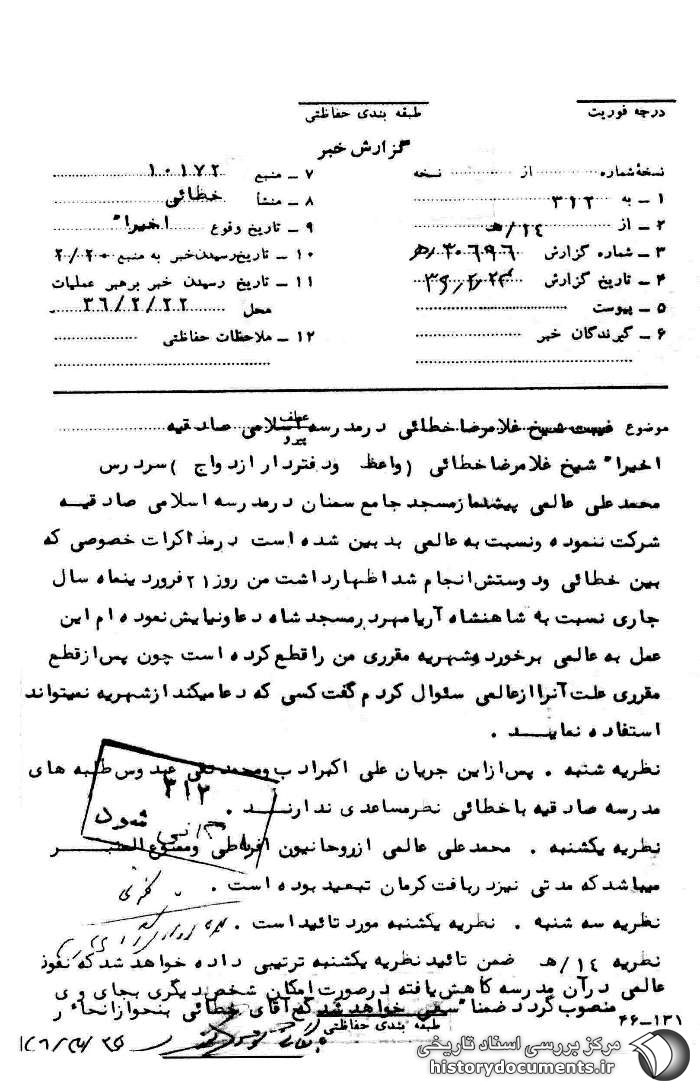 درجه فوریت
طبقه بندی حفاظتی
گزارش خبر
نسخهٔ شماره از نسخه
۱ - به ۳۱۲
۲ - از ۱۴/هـ
۳ - شماره گزارش ۴۰۶۹۶/هـ
۴ - تاریخ گزارش
۵ - پیوست
۶ - گیرندگان خبر
۷ - منبع ۱۰۱۷۲
۸ - منشأ خطائی
۹ - تاریخ وقوع اخیرا"
۱۰ - تاریخ رسیدن خبر به منبع ۲/۲۰
۱۱ - تاریخ رسیدن خبر برهبر عملیات
محل ۳۶/۲/۲۲
۱۲ - ملاحظات حفاظتی
موضوع غیبت شیخ غلامرضا خطائی درمدرسه اسلامی صادقیه
عطف
پیرو
اخیرا" شیخ غلامرضا خطائی (واعظ ودفتردار ازدواج) سردرس
محمدعلی عالمی پیشنماز مسجد جامع سمنان درمدرسه اسلامی صادقیه
شرکت ننموده ونسبت به عالمی بدبین شده است درمذاکرات خصوصی که
بین خطائی ودوستش انجام شد اظهارداشت من روز ۲۱ فروردینماه سال
جاری نسبت به شاهنشاه آریامهر درمسجد شاه دعا ونیایش نموده ام این
عمل به عالمی برخورد وشهریه مقرری من را قطع کرده است چون پس ازقطع
مقرری علت آنرا ازعالمی سئوال کردم گفت کسی که دعا میکند ازشهریه نمیتواند
استفاده نماید .
نظریه شنبه . پس ازاین جریان علی اکبر ادب ومحمدتقی عبدوس طلبه های
مدرسه صادقیه باخطائی نظرمساعدی ندارند .
نظریه یکشنبه . محمدعلی عالمی ازروحانیون افراطی وممنوع المنبر
میباشد که مدتی نیزدربافت کرمان تبعید بوده است .
نظریه سه شنبه . نظریه یکشنبه مورد تائید است .
نظریه ۱۴/هـ ضمن تائید نظریه یکشنبه ترتیبی داده خواهد شد که نفوذ
عالمی درآن مدرسه کاهش یافته درصورت امکان شخص دیگری بجای وی
منصوب گردد ضمنا" سعی خواهد شد که آقای خطائی بنحوازانحاء ر
۳۱۲
شود
طبقه بندی حفاظتی
۴۶-۱۳۱
مرکز بررسی اسناد تاریخی
historydocuments.ir